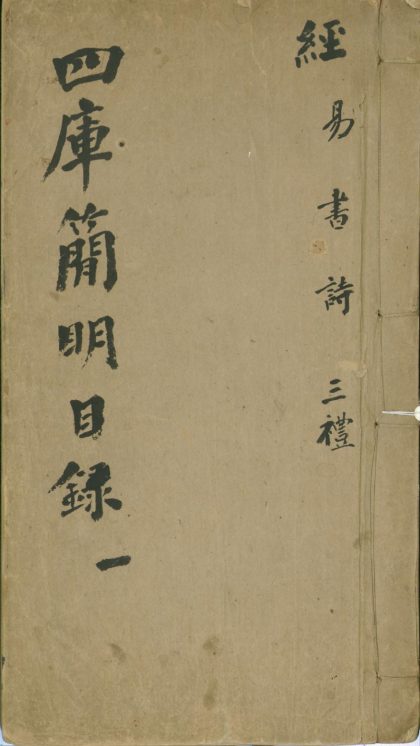 經 易 書 詩 三禮
四庫簡明目録 一